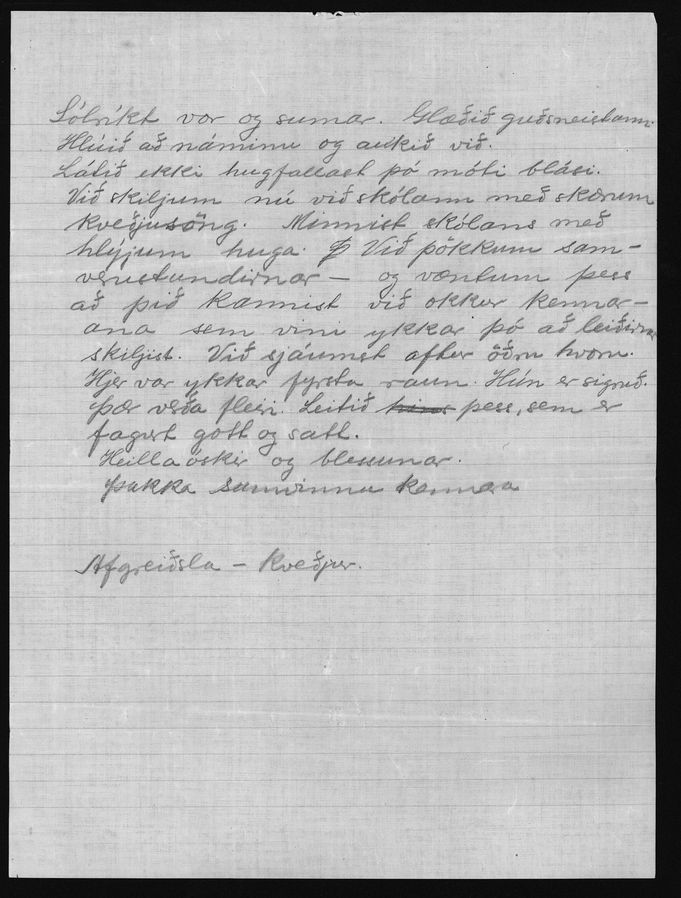 Sólríkt vor og sumar. Glæðið guðsneistann.
Hlúið að náminu og aukið við.
Látið ekki hugfallast þó móti blási.
Við skiljum nú við skólann með skærum
kveðjusöng. Minnist skólans með
hlýjum huga. Við þökkum sam-
verustundirnar — og væntum þess
að þið kannist við okkur kennar-
ana sem vini ykkar þó að leiðirnar
skiljist. Við sjáumst aftur öðru hvoru.
Hjer var ykkar fyrsta raun. Hún er sigruð.
Þær verða fleiri. Leitið hins þess, sem er
fagurt gott og satt.
Heillaóskir og blessunar.
Þakka samvinnu kennara
Afgreiðsla — Kveðjur.